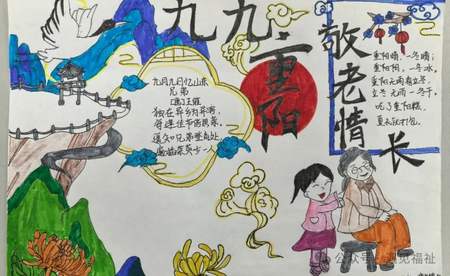 九九·重阳
敬老情长
九月九日忆山东
兄弟
[唐]王维
独在异乡为异客，
每逢佳节倍思亲，
遥知兄弟登高处，
遍插茱萸少一人。
重阳晴，一冬晴；
重阳阴，一冬冰。
重阳无雨看立冬，
立冬无雨一冬干。
吃了重阳糕，
夏衣就打包。
公众号·遇见福祉